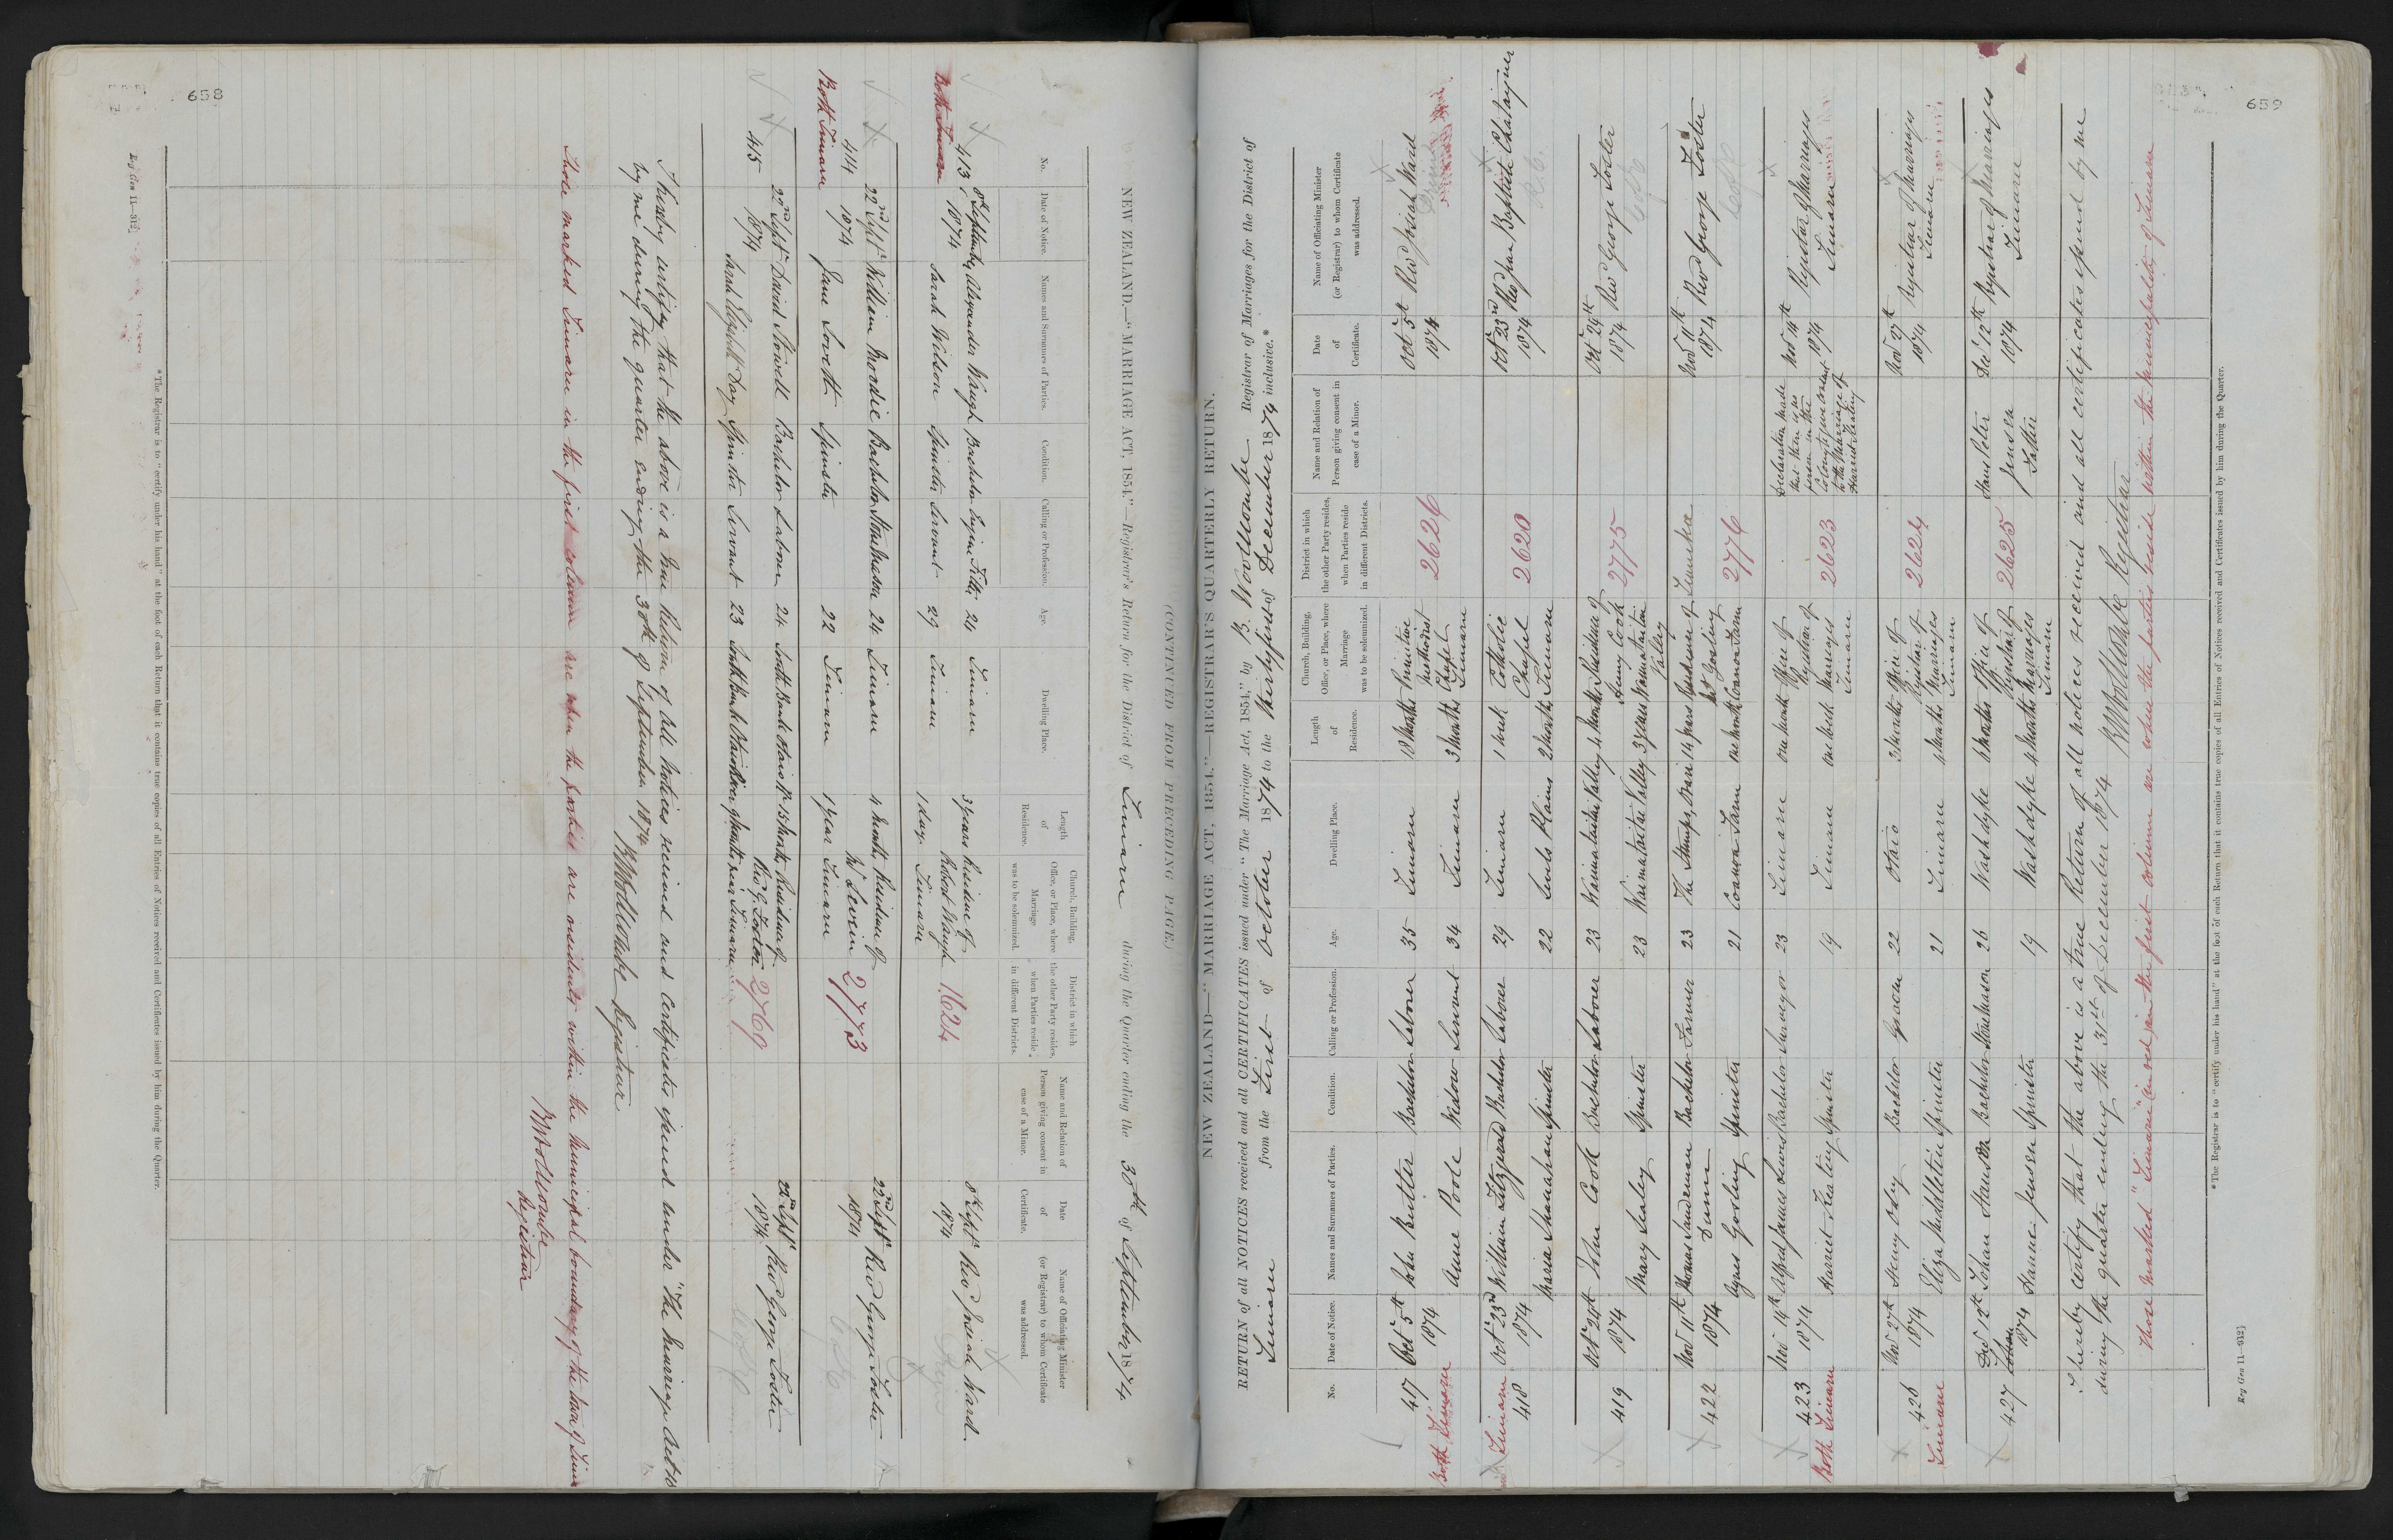 658
(CONTINUED FROM PRECEDING PAGE.)
NEW ZEALAND.—"MARRIAGE ACT, 1854."—Registrar's Return for the District of Timaru during the Quarter ending the 30th of September 1874.
No. Date of Notice. Names and Surnames of Parties. Condition. Calling or Profession. Age. Dwelling Place. Length of Residence. Church, Building, Office, or Place, where Marriage was to be solemnized. District in which the other Party resides, when Parties reside in different Districts. Name and Relation of Person giving consent in case of a Minor. Date of Certificate. Name of Officiating Minister (or Registrar) to whom Certificate was addressed.
413 8th September Alexander Waugh Bachelor Engine Fitter 24 Timaru 3 years Residence of 8th Septr Revd Josiah Ward
Both Timaru 1874 Sarah Wilson Spinster Servant 29 Timaru 1 day Robert Waugh Timaru 1624 1874
414 22nd Septr William Mordie Bachelor Stonemason 24 Timaru 4 months Residence of 22nd Septr Revd George Foster
Both Timaru 1874 Jane Lovett Spinster 22 Timaru 1 year W Levein Timaru 2773 1874
415 22nd Septr David Stowell Bachelor Labourer 24 South Bank Otaio R. 15 months Residence of 22nd Septr Revd George Foster
1874 Sarah Elizabeth Day Spinster Servant 23 South Bank Otaio River 9 months Revd G. Foster near Timaru 2769 1874
I hereby certify that the above is a true Return of all Notices received and Certificates issued under "The Marriage Act 18
by me during the quarter ending the 30th of September 1874
B Woollcombe Registrar
Those marked Timaru in the first column are when the parties are residents within the Municipal boundary of the town of Tima
B Woollcombe
Registrar
*The Registrar is to "certify under his hand" at the foot of each Return that it contains true copies of all Entries of Notices received and Certificates issued by him during the Quarter.
659
NEW ZEALAND—"MARRIAGE ACT, 1854."—REGISTRAR'S QUARTERLY RETURN.
RETURN of all NOTICES received and all CERTIFICATES issued under "The Marriage Act, 1854," by B. Woollcombe Registrar of Marriages for the District of
Timaru from the First of October 1874 to the thirtyfirst of December 1874 inclusive.*
No. Date of Notice. Names and Surnames of Parties. Condition. Calling or Profession. Age. Dwelling Place. Length of Residence. Church, Building, Office, or Place, where Marriage was to be solemnized. District in which the other Party resides, when Parties reside in different Districts. Name and Relation of Person giving consent in case of a Minor. Date of Certificate. Name of Officiating Minister (or Registrar) to whom Certificate was addressed.
417 Oct 5th John Butter Bachelor Laborer 35 Timaru 18 months Primitive Methodist Oct 5th Revd Josiah Ward
Both Timaru 1874 Anne Poole Widow Servant 34 Timaru 3 months Chapel Timaru 2626 1874
Timaru Oct 23rd William Fitzgerald Bachelor Laborer 29 Timaru 1 week Catholic Oct 23rd Revd Jean Baptiste Chataigner
418 1874 Maria Shanahan Spinster 22 Levels Plains 2 months Chapel Timaru 2620 1874
Oct 29th John Cook Bachelor Laborer 23 Waimataitai Valley 4 months Residence of Oct 29th Revd George Foster
419 1874 Mary Sealey Spinster 23 Waimataitai Valley 3 years Henry Cook Waimataitai Valley 2775 1874
Nov 11th Thomas Sandeman Dunn Bachelor Farmer 23 The Stumps, 14 years Residence of Temuka Nov 11th Revd George Foster
422 1874 Agnes Gosling Spinster 21 Coanwa Farm one month Mr Gosling Coanwa Farm 2776 1874
Nov 14th Alfred James Lewis Bachelor Surveyor 23 Timaru one month Office of Registrar of Declaration made that there is no person in the Colony to give consent to the Marriage of Harriet Keating Nov 14th Registrar of Marriages
423 Both Timaru 1874 Harriet Keating Spinster 19 Timaru one week Marriages Timaru 2623 1874 Timaru
Nov 27th Henry Oxley Bachelor Groom 22 Otaio 3 months Office of Registrar of Nov 27th Registrar of Marriages
426 Timaru 1874 Eliza Middleton Spinster 21 Timaru 4 months Marriages Timaru 2624 1874 Timaru
Dec 12th Johan Hansen Bachelor Stonemason 26 Washdyke 6 months Office of Registrar of Hans Peter Jensen Father Dec 12th Registrar of Marriages
427 1874 Hanne Jensen Spinster 19 Washdyke 4 months Marriages Timaru 2625 1874 Timaru
I hereby certify that the above is a true Return of all notices received and all certificates issued by me
during the quarter ending the 31st of December 1874 B Woollcombe Registrar
Those marked "Timaru" in red in the first column are where the parties reside within the municipality of Timaru
*The Registrar is to "certify under his hand" at the foot of each Return that it contains true copies of all Entries of Notices received and Certificates issued by him during the Quarter.